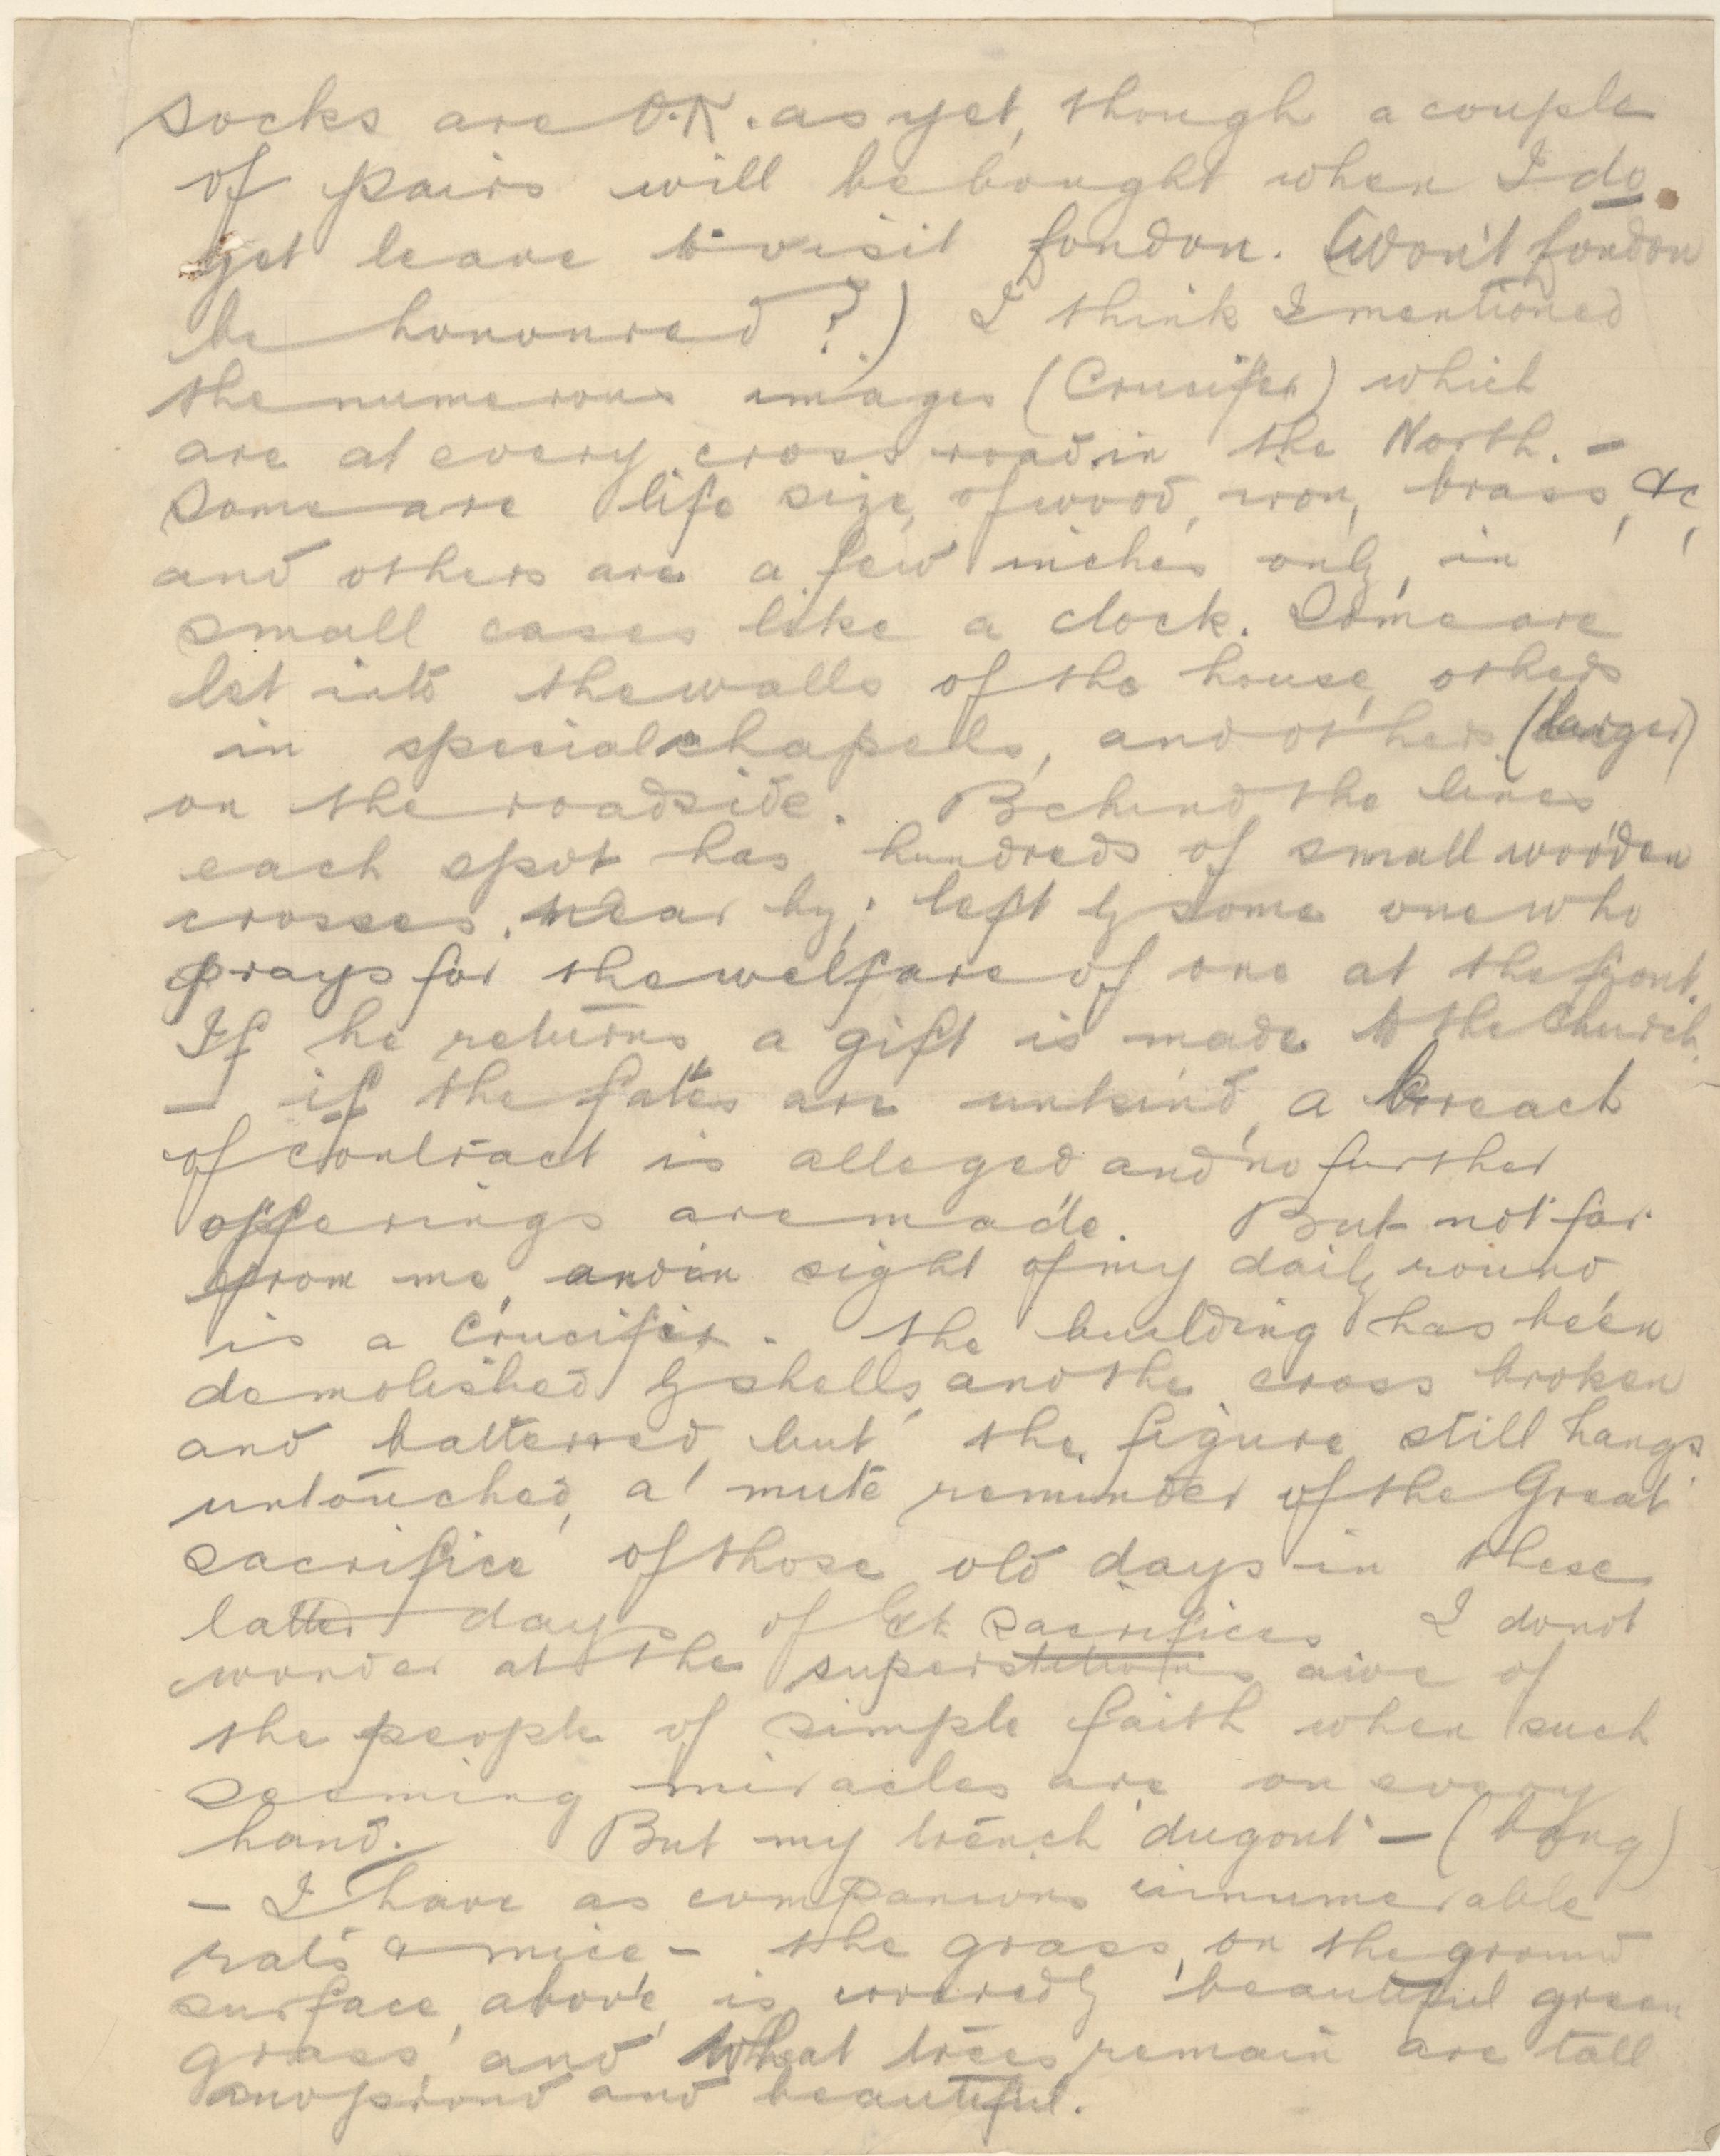 socks are O.K. as yet, though a couple
of pairs will be bought when I do
get leave to visit London. (Won't London
be honoured?) I think I mentioned
the numerous images (Crucifix) which
are at every cross road in the North. -
Some are life size, of wood, iron, brass, &c,
and others are a few inches only, in
small cases like a clock. Some are
let into the walls of the house, others
in special chapels, and others (larger)
on the roadside. Behind the lines
each spot has hundreds of small wooden
crosses. near by; left by some one who
prays for the welfare of one at the front.
If he returns a gift is made to the Church.
- if the fates are unkind, a breach
of contract is alleged and no further
offerings are made. But not far
from me, and in sight of my daily round
is a Crucifix. The building has been
demolished by shells, and the cross broken
and battered, but the figure still hangs
untouched, a mute reminder of the Great
sacrifice of those old days in these
latter days of Gt. Sacrifices. I do not
wonder at the superstitious awe of
the people of simple faith when such
seeming miracles are on every
hand. But my trench dugout - (bong)
- I have as companions innumerable
rats & mice - the grass, on the ground
surface, above, is covered by beautiful green
grass, and what trees remain are tall
and proud and beautiful.